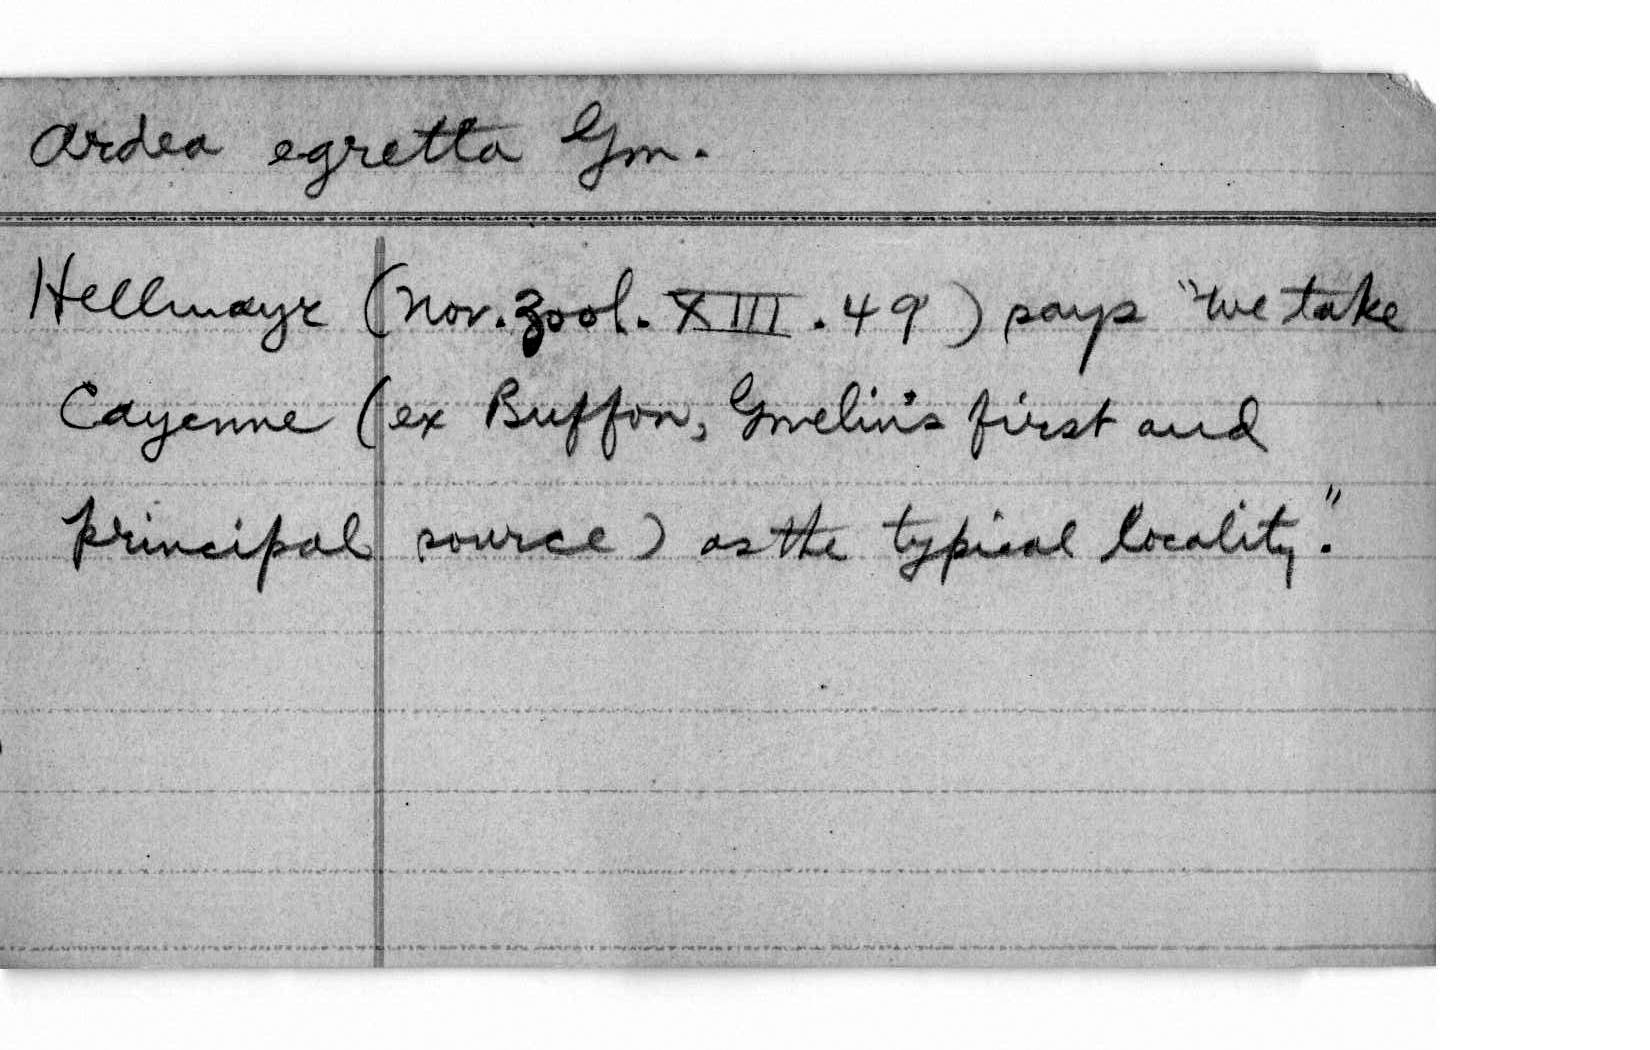 Ardea egretta Gm.
Hellmayr (Nov. Zool. XIII. 49) says "we take
Cayenne (ex Buffon, Gmelin's first and
principal source) as the typical locality."